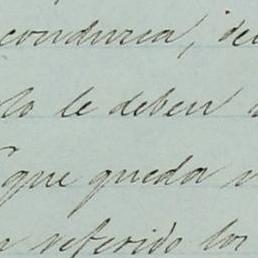 conducia, de
lo le deben a
que queda
referido los